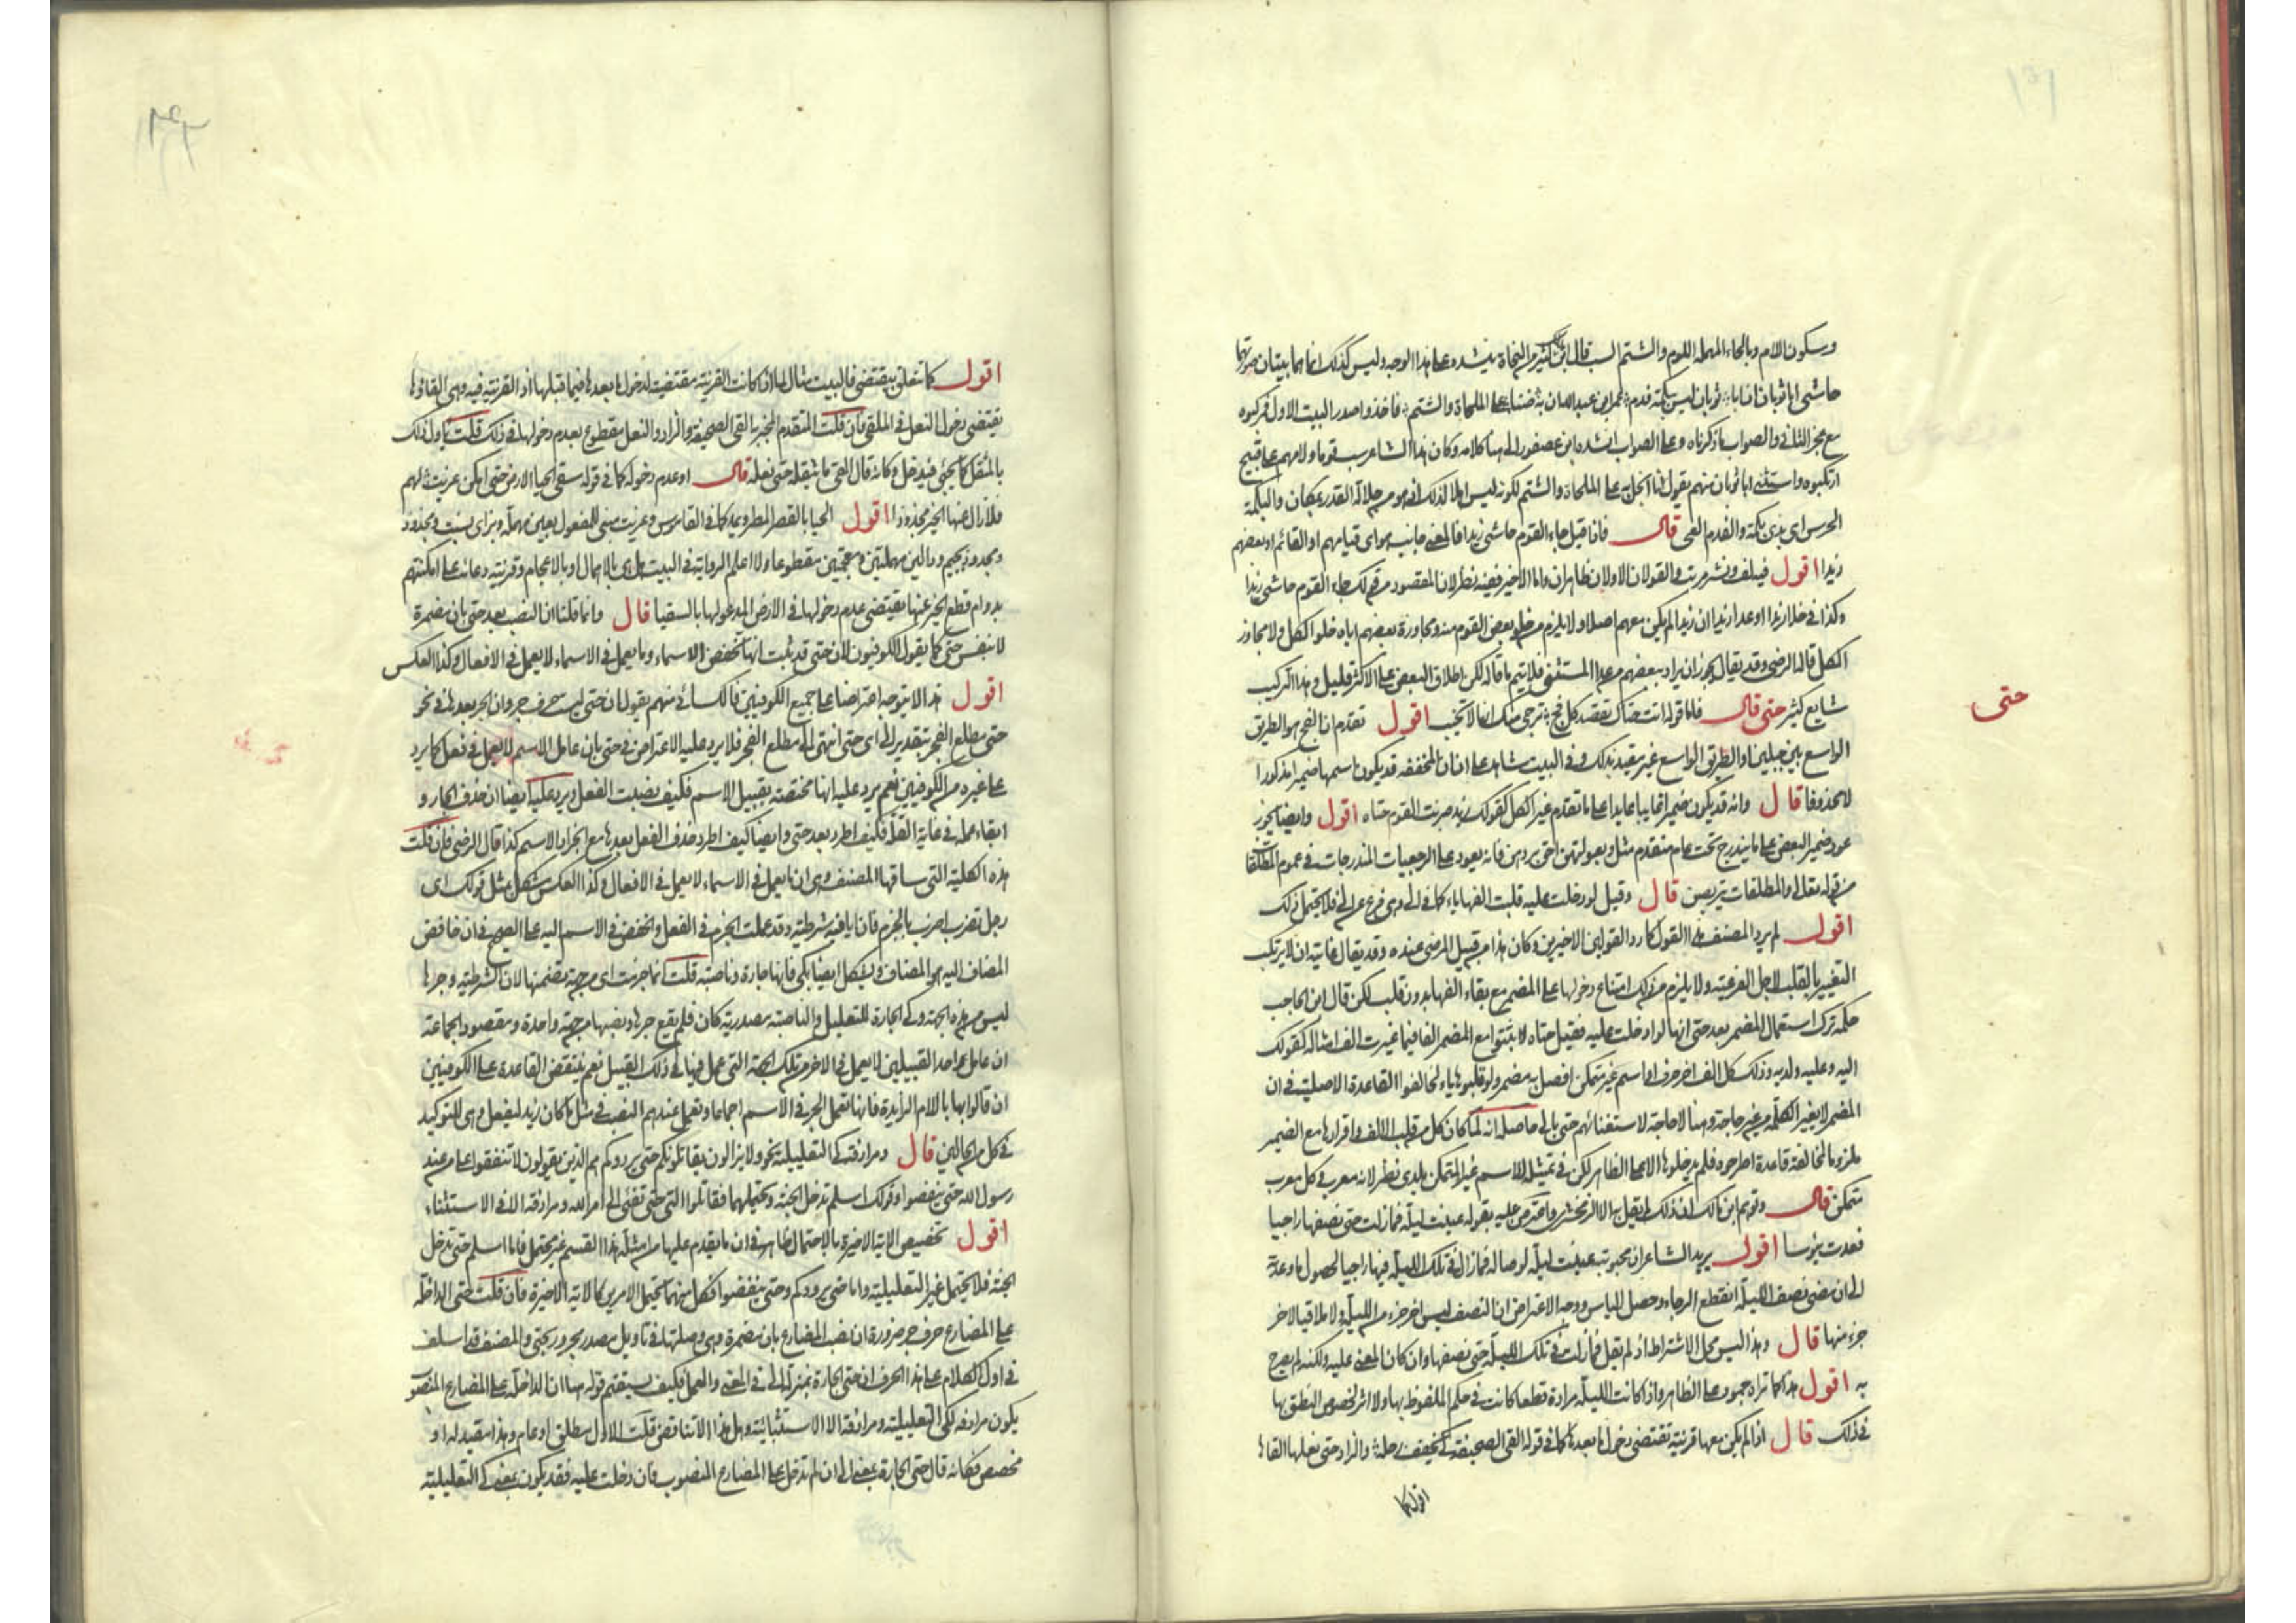 وسكون اللام وبالحاء المهملة اللوم والشتم السب قال ابن كثير من النحاة ينشده على هذا الوجه وليس كذلك انما هما بيتان صورتهما
حاشى ابا ثوبان ان ابا ثوبان ليس ببكمة فدم عمرو بن عبدالله ان به ضنا على الملحاة والشتم فاخذوا صدر البيت الاول فركبوه
مع عجز الثاني والصواب ما ذكرناه وعلى الصواب انشده ابن عصفور الى هنا كلامه وكان هذا الشاعر سب قوما ولامهم على قبيح
ارتكبوه واستثنى ابا ثوبان منهم يقول انا ابخل به على الملحاة والشتم لكونه ليس اهلا لذلك اذ هو من جلالة القدر بمكان والبكمة
الخرس اى بذى بكمة والفدم العي قال فاذا قيل جاء القوم حاشى زيدا فالمعنى جانب هو اى قيامهم او القائم او بعضهم
زيدا اقول فيه لف ونشر مرتب والقولان الاولان ظاهران واما الاخير ففيه نظر لان المقصود من قولك جاء القوم حاشى زيدا
وكذا فى خلا زيدا او عدا زيدا ان زيدا لم يكن معهم اصلا ولا يلزم من خلو بعض القوم منه ومجاوزة بعضهم اياه خلو الكل ولا مجاوز
الكل قاله الرضى وقد يقال يجوز ان يراد ببعضهم من عدا المستثنى فلا يتم ما قاله لكن اطلاق البعض على الاكثر قليل وهذا التركيب
شايع كثير حتى قال فاما قوله اتت حتاك تقصد كل فج ترجى منك انها لا تخيب اقول تقدم ان الفج هو الطريق
الواسع بين جبلين او الطريق الواسع غير مقيد بذلك وفى البيت شاهد على ان ان المخففة قد يكون اسمها ضميرا مذكورا
لا محذوفا قال وانه قد يكون ضميرا غايبا عايدا على ما تقدم غير الكل كقولك زيد ضربت القوم حتاه اقول وايضا يجوز
عود ضمير البعض على ما يندرج تحت عام متقدم مثل وبعولتهن احق بردهن فانه يعود على الرجعيات المندرجات فى عموم المطلقات
من قوله تعالى والمطلقات يتربصن قال وقيل لو دخلت عليه قلبت الفها ياء كما فى الى وهى فرع عن الى فلا يحتمل ذلك
اقول لم يرد المصنف هذا القول كما رد القولين الاخيرين وكان هذا من قبيل المرضى عنده وقد يقال غايته ان لا يرتكب
التغيير بالقلب لاجل الفرعية ولا يلزم من ذلك امتناع دخولها على المضمر مع بقاء الفها بدون قلب لكن قال ابن الحاجب
حكمة ترك استعمال المضمر بعد حتى انها لو ادخلت عليه فقيل حتاه لاثبتوا مع المضمر الفا فيما غيرت الف امثاله كقولك
اليه وعليه ولديه وذلك كل الف اخر حرف او اسم غير متمكن اتصل به مضمر ولو قلبوها ياء لخالفوا القاعدة الاصلية فى ان
المضمر لا يغير الكلمة من غير حاجة وهنا لا حاجة لاستغنائهم حتى بالى حاصله انه لما كان كل من قلب الالف واقرارها مع الضمير
ملزوما لمخالفة قاعدة اطرحوه فلم يدخلوها الا على الظاهر لكن فى تمثيله للاسم غير المتمكن بلدى نظر لانه معرب وكل معرب
متمكن قال وتوهم ابن مالك ان ذلك لم يقل به الا الزمخشرى واعترض عليه بقوله عينت ليلة فمازلت حتى نصفها راجيا
فعدت يؤسا اقول يريد الشاعر ان محبوبته عينت ليلة لوصاله فمازال فى تلك الليلة فيها راجيا لحصول ما وعدته
الى ان مضى نصف الليلة انقطع الرجاء وحصل الياس ووجه الاعتراض ان النصف ليس اخر جزء من الليلة ولا ملاقيا لاخر
جزء منها قال وهذا ليس محل الاشتراط اذ لم يقل فمازلت فى تلك الليلة حتى نصفها وان كان المعنى عليه ولكنه لم يصرح
به اقول هذا كما تراه جمود على الظاهر واذا كانت الليلة مرادة قطعا كانت فى حكم الملفوظ بها ولا اثر لخصوص النطق بها
فى ذلك قال اذا لم يكن معها قرينة تقتضى دخول ما بعدها كما فى قوله القى الصحيفة كى يخفف رحله والزاد حتى نعله القاها
اقول كما
حتى
اقول كما تتعلق بيقتضى فالبيت مثال لما اذا كانت القرينة مقتضية لدخول ما بعدها فيما قبلها اذ القرينة فيه وهى القاها
يقتضى دخول النعل فى الملقى فان قلت المتقدم المخبر بالقى الصحيفة والزاد والنعل مقطوع بعدم دخولها فى ذلك قلت يأول ذلك
بالمثقل كما يجئ فيدخل وكانه قال القى ما يثقله حتى نعله قال او عدم دخوله كما فى قوله سقى الحيا الارض حتى امكن عزيت لهم
فلا زال عنها الخير مجذوذا اقول الحيا بالقصر المطر ويمد كما فى القاموس وعزيت مبنى للمفعول بعين مهملة وبزاى نسبت ومحدود
ومجذوذ بجيم ودالين مهملتين ومعجمتين مقطوعا ولا اعلم الرواية فى البيت هل هى بالاهمال او بالاعجام وقرينته دعائه على امكنتهم
بدوام قطع الخير عنها يقتضى عدم دخولها فى الارض المدعو لها بالسقيا قال وانما قلنا ان النصب بعد حتى بان مضمرة
لا بنفس حتى كما يقول الكوفيون لان حتى قد ثبت انها تخفض الاسماء وما يعمل فى الاسماء لا يعمل فى الافعال وكذا العكس
اقول هذا لا يتوجه اعتراضا على جميع الكوفيين فالكسائى منهم يقول ان حتى ليست حرف جر وان الجر بعدها فى نحو
حتى مطلع الفجر بتقدير الى اى حتى انتهى الى مطلع الفجر فلا يرد عليه الاعتراض فى حتى بان عامل الاسم لا يعمل فى فعل كما يرد
على غيره من الكوفيين نعم يرد عليه انها مختصة بقبيل الاسم فكيف نصبت الفعل ويرد عليه ايضا ان حذف الجار و
ابقاء عمله فى غاية القلة فكيف اطرد بعد حتى وايضا كيف اطرد حذف الفعل بعدها مع انجرار الاسم كذا قال الرضى فان قلت
هذه الكلية التى ساقها المصنف وهى ان ما يعمل فى الاسماء لا يعمل فى الافعال وكذا العكس يشكل بمثل قولك اى
رجل تضرب اضرب بالجزم فان ايا فيه شرطية وقد عملت الجزم فى الفعل والخفض فى الاسم اليه على الصحيح فى ان خافض
المضاف اليه هو المضاف ويشكل ايضا بكى فانها جارة وناصبة قلت انما جزمت اى من جهة تضمنها لان الشرطية وجرها
ليس من هذه الجهة وكى الجارة للتعليل والناصبة مصدرية كان فلم يقع جرها ونصبها من جهة واحدة ومقصود الجماعة
ان عامل احد القبيلين لا يعمل فى الاخر من تلك الجهة التى عمل فيها فى ذلك القبيل نعم ينتقض القاعدة على الكوفيين
ان قالوا بها باللام الزايدة فانها تعمل الجر فى الاسم اجماعا وتعمل عندهم النصب فى مثل ما كان زيد ليفعل وهى للتوكيد
فى كل من الحالين قال ومرادفة كى التعليلية نحو ولا يزالون يقاتلونكم حتى يردوكم هم الذين يقولون لا تنفقوا على من عند
رسول الله حتى ينفضوا وقولك اسلم حتى تدخل الجنة ويحتملهما فقاتلوا التى تبغى حتى تفئ الى امر الله ومرادفة الا فى الاستثناء
اقول تخصيص الاية الاخيرة بالاحتمال ظاهر فى ان ما يقدم عليها من امثلة هذا القسم غير محتمل فاما اسلم حتى تدخل
الجنة فلا يحتمل غير التعليلية واما حتى يردوكم وحتى ينفضوا فكل منهما يحتمل الامرين كالاية الاخيرة فان قلت حتى الداخلة
على المضارع حرف جر ضرورة ان نصب المضارع بان مضمرة وهى وصلتها فى تأويل مصدر مجرور بحتى والمصنف قد اسلف
فى اول الكلام على هذا الحرف ان حتى الجارة بمنزلة الى فى المعنى والعمل فكيف يستقيم قوله هنا ان الداخلة على المضارع المنصوب
يكون مرادفه لكى التعليلية ومرادفة الا الاستثنائية وهل هذا الا تناقض قلت الاول مطلق او عام وهذا مقيد له او
مخصص فكانه قال حتى الجارة بمعنى الى ان لم تدخل على المضارع المنصوب فان دخلت عليه فقد يكون بمعنى كى التعليلية